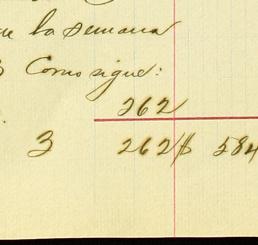 la semana
3 Como sigue:
262
3 262 $ 584